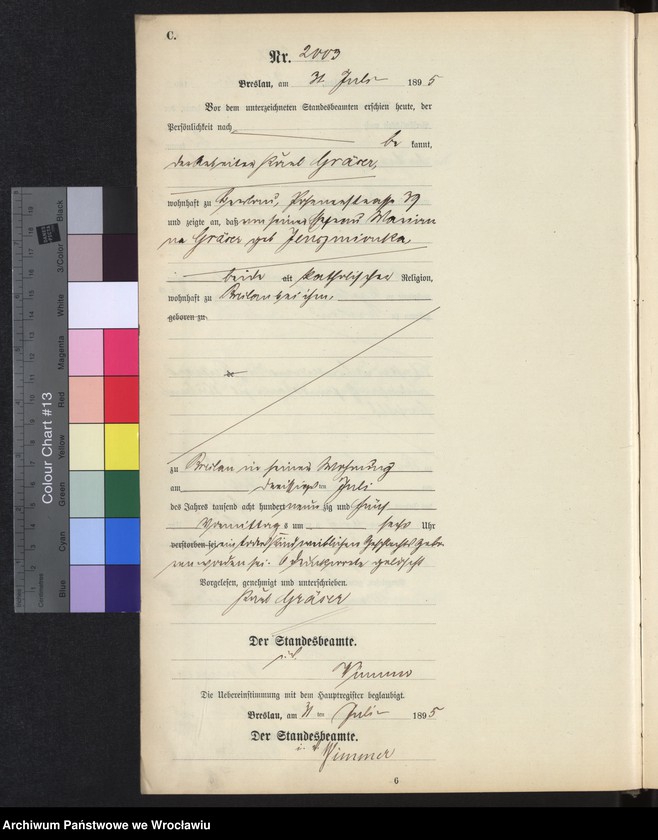 C.
Nr. 2003
Breslau, am 31. Juli 1895
Vor dem unterzeichneten Standesbeamten erschien heute, der
Persönlichkeit nach
be kannt,
der Arbeiter Karl Gräser,
wohnhaft zu Breslau, Posenerstrasse 39
und zeigte an, daß von seiner Ehefrau Marian
na Gräser geb
beide katholischer Religion,
wohnhaft zu Breslau bei ihm,
geboren zu
zu Breslau in seiner Wohnung
am dreissigsten Juli
des Jahres tausend acht hundert neun zig und fünf
Vormittags um sechs Uhr
verstorben sei ein todtes Kind weiblichen Geschlechts gebo
ren worden sei. 6 Druckworte gelöscht
Vorgelesen, genehmigt und unterschrieben.
Karl Gräser
Der Standesbeamte.
i.V.
Wimmer
Die Uebereinstimmung mit dem Hauptregister beglaubigt.
Breslau, am 31 ten Juli 1895
Der Standesbeamte.
i. V. Wimmer
6
Colour Chart #13
Blue
Cyan
Green
Yellow
Red
Magenta
White
3/Color
Black
Centimetres
Archiwum Państwowe we Wrocławiu